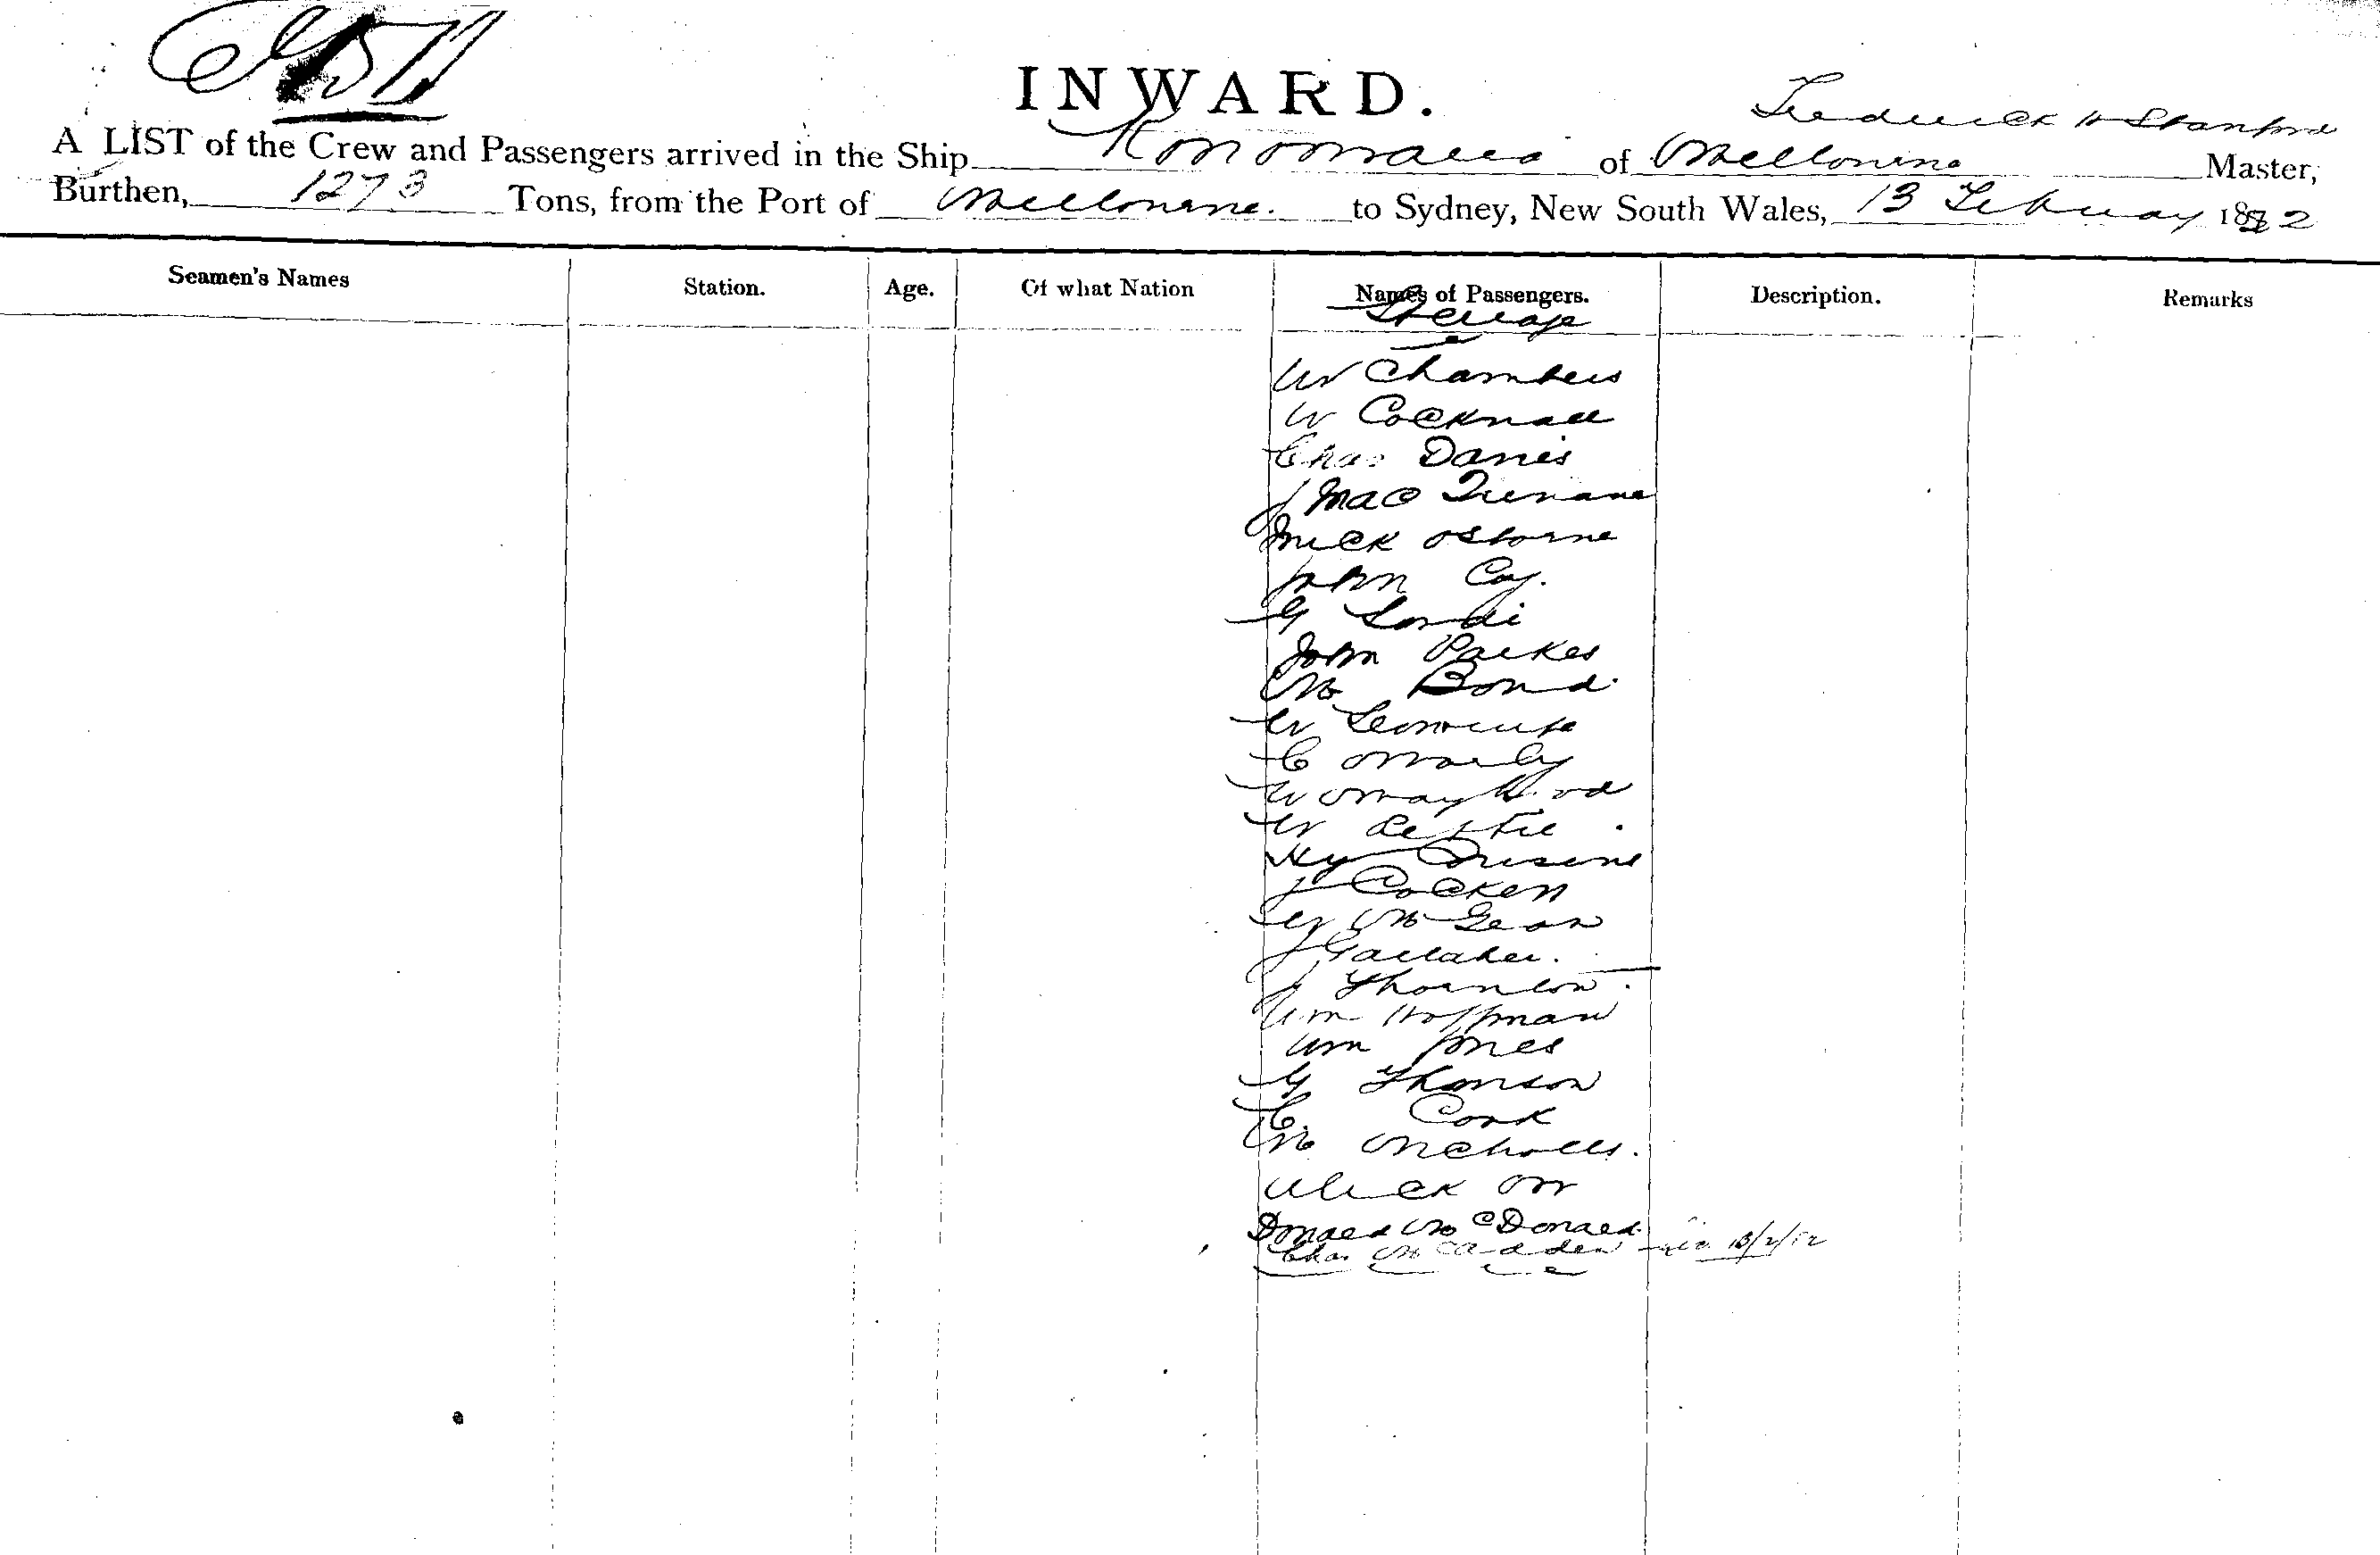 INWARD.
Frederick H Stanford
A LIST of the Crew and Passengers arrived in the Ship Konoowarra of Melbourne Master,
Burthen, 1273 Tons, from the Port of Melbourne. to Sydney, New South Wales, 13 February 1882
Seamen's Names Station. Age. Of what Nation Names of Passengers. Description. Remarks
Steerage
W Chambers
W Cocknall
Chas Davies
J Mac
Mick Osborne
John Coy.
G Sordi
John Parkes
M Bond
W
C
W
W
Hy
J Cocken
W McGean
J Gallaher.
J Thornton.
Wm Hoffman
Wm Jones
G Thomson
C. Cook
M Nicholls.
Alick Orr
Donald McDonald
Chas McCadden 13/2/82